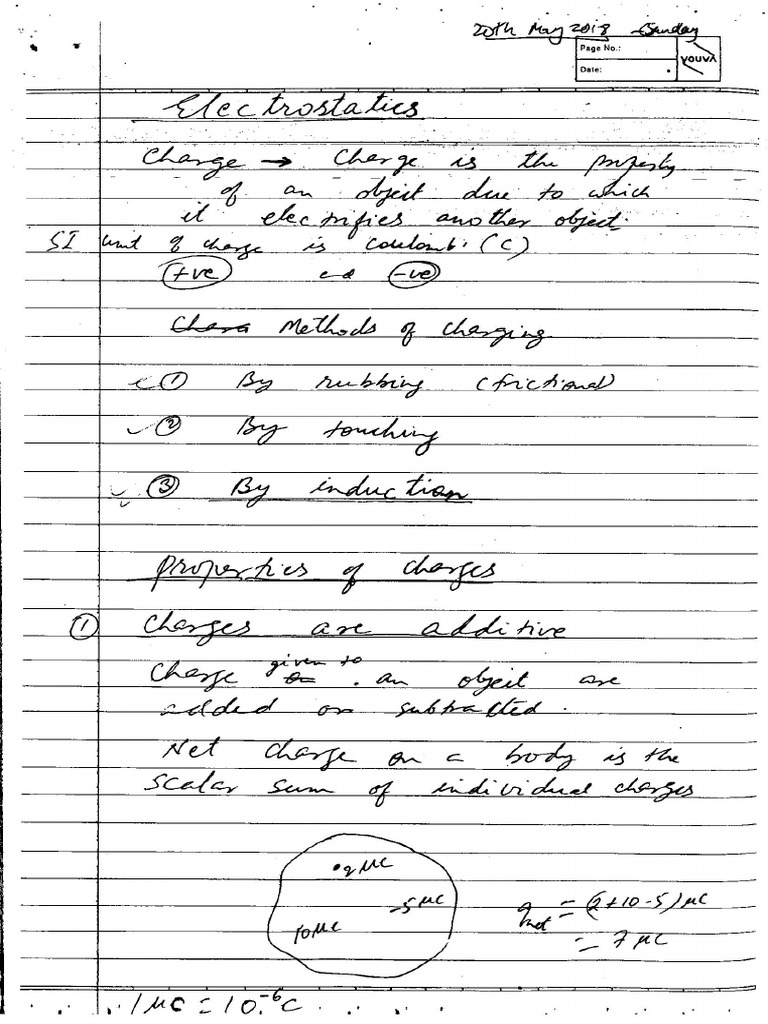 20th May 2018 Sunday
Page No.:
Date:
YOUVA
Electrostatics
Charge → Charge is the property
of an object due to which
it electrifies another object.
SI unit of charge is coulomb. (C)
+ve -ve
Chara Methods of charging
① By rubbing (frictional)
② By touching
③ By induction
Properties of charges
① Charges are additive
given to
Charge an object are
added or subtracted.
Net charge on a body is the
scalar sum of individual charges
2 μC
-5 μC
10 μC
qnet = (2+10-5) μC
= 7 μC
1 μC = 10⁻⁶ C